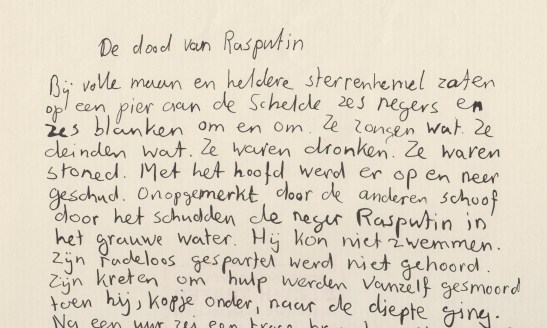 De dood van Rasputin
Bij volle maan en heldere sterrenhemel zaten
op een pier aan de Schelde zes negers en
zes blanken om en om. Ze zongen wat. Ze
deinden wat. Ze waren dronken. Ze waren
stoned. Met het hoofd werd er op en neer
geschud. Onopgemerkt door de anderen schoof
door het schudden de neger Rasputin in
het grauwe water. Hij kon niet zwemmen.
Zijn radeloos gespartel werd niet gehoord.
Zijn kreten om hulp werden vanzelf gesmoord
toen hij, kopje onder, naar de diepte ging.
Na een uur zei een